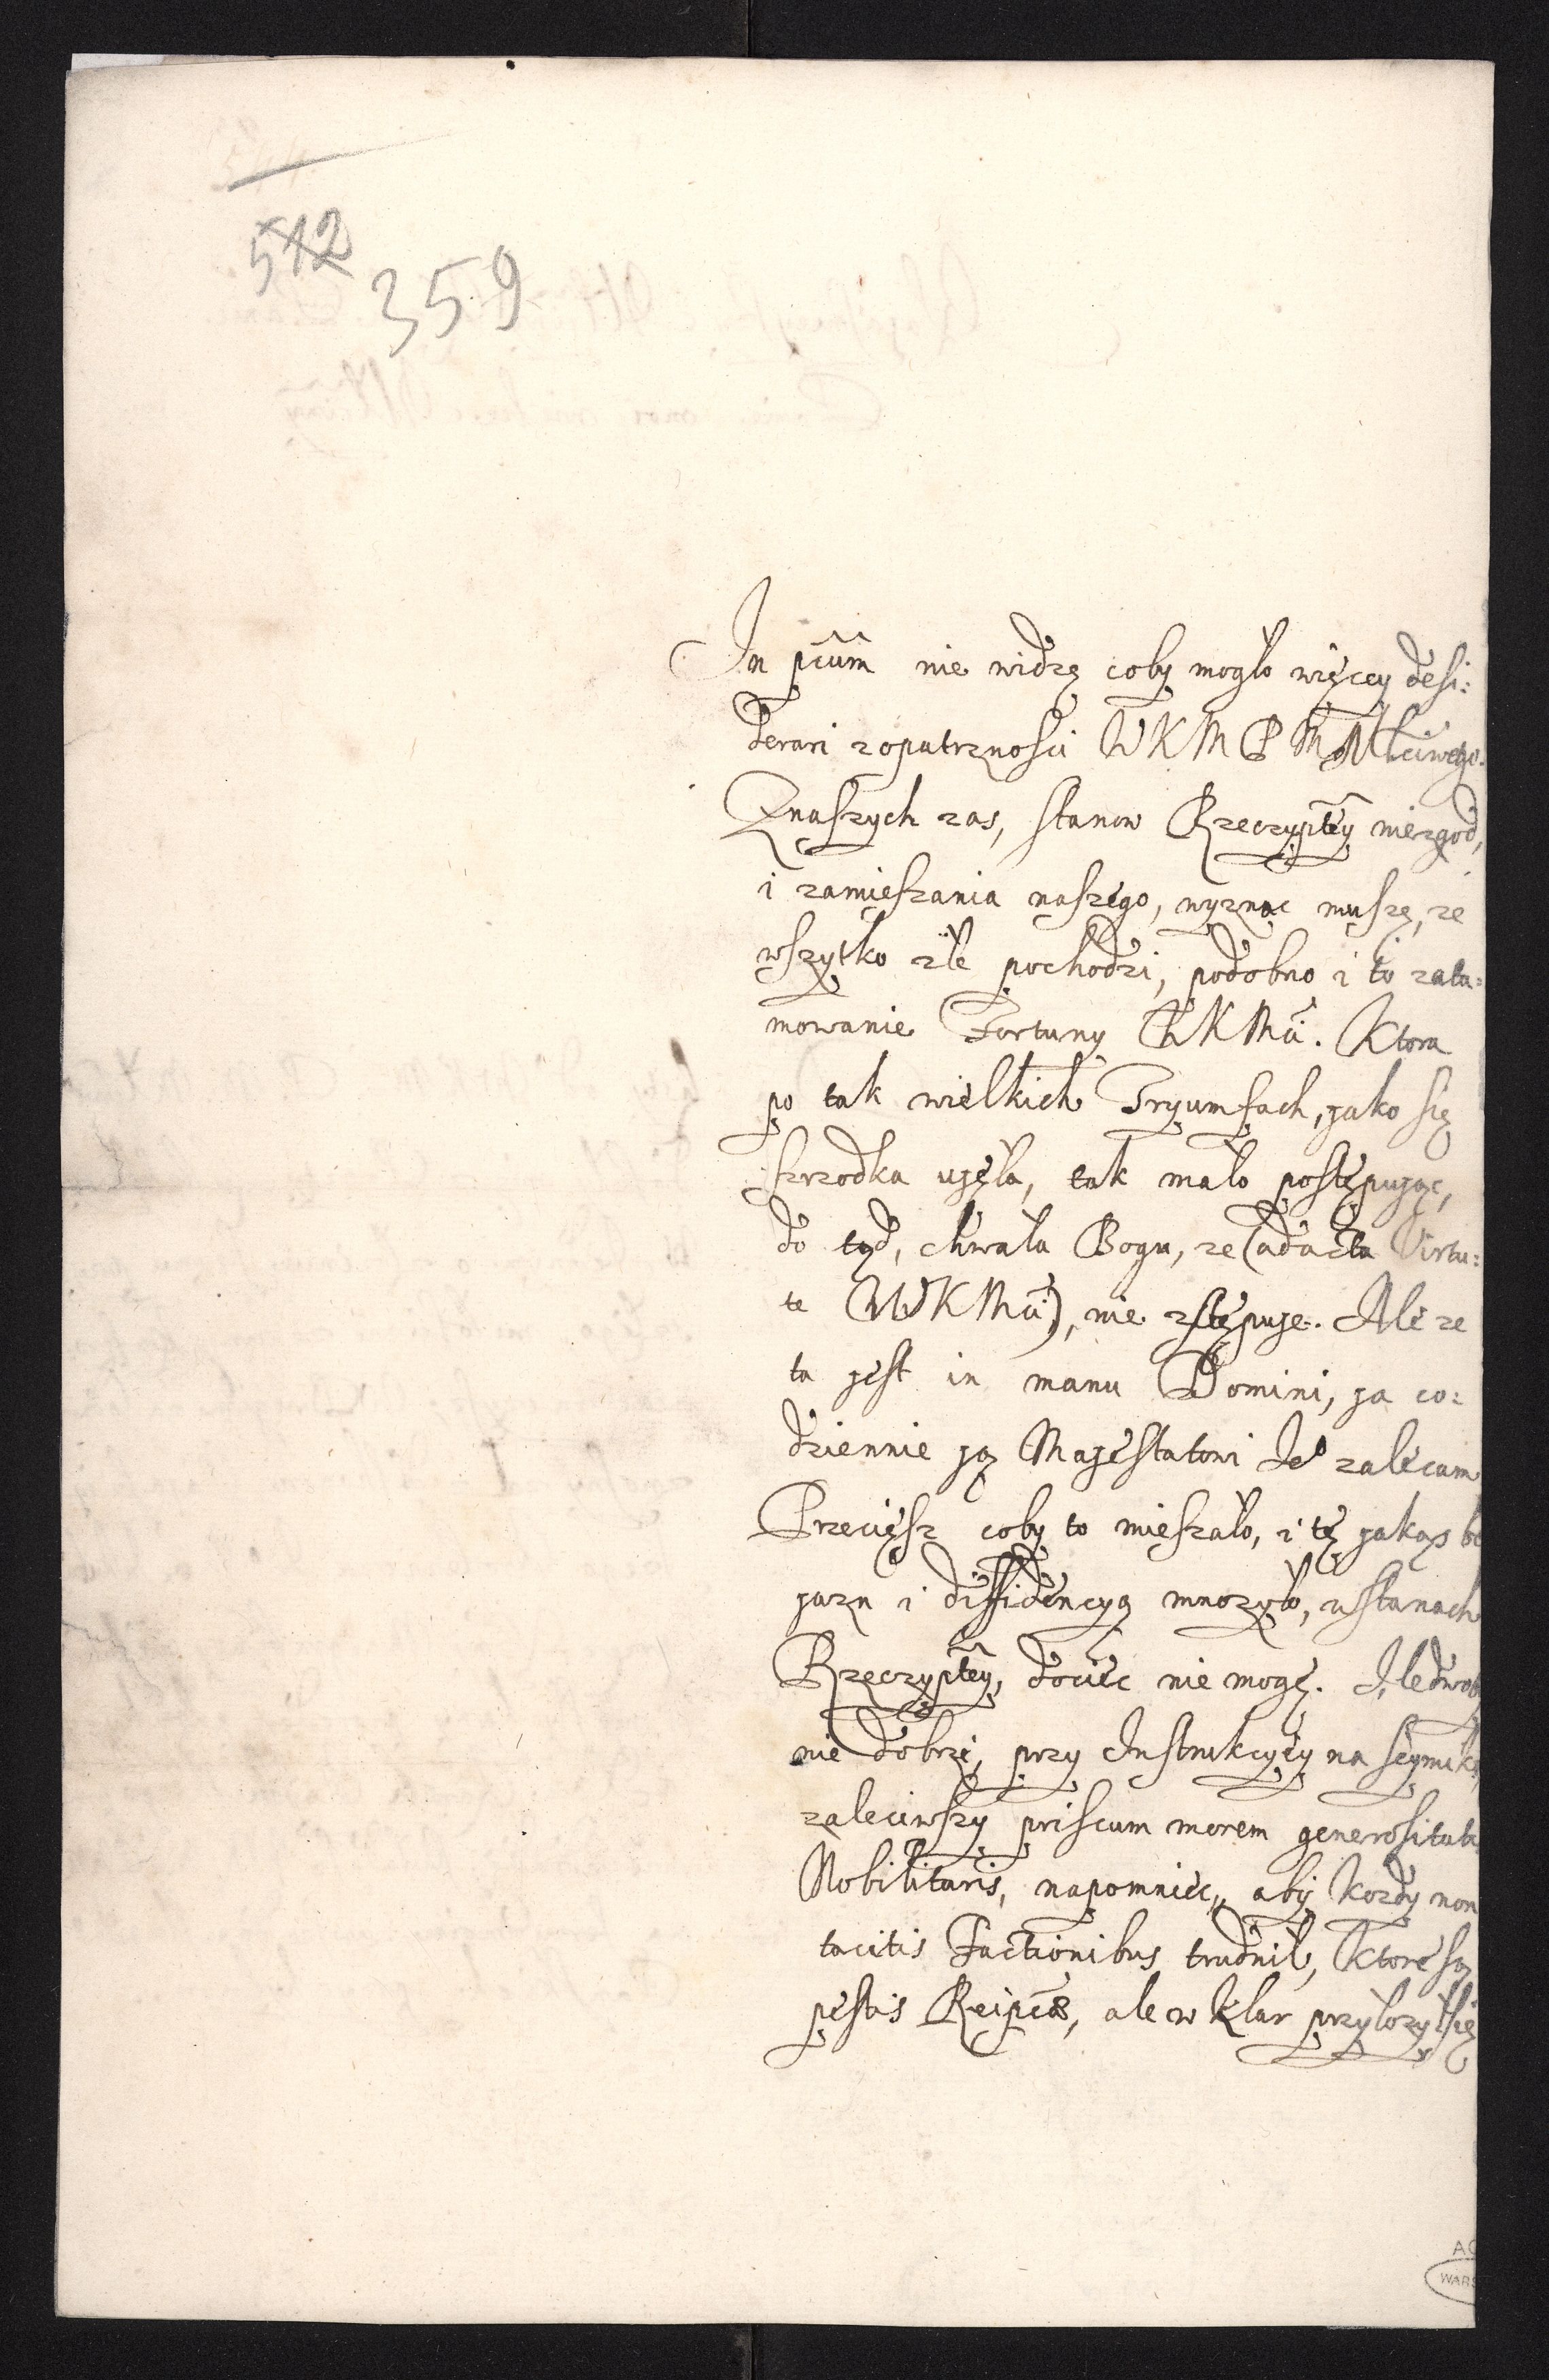 512
359
In pcum nie widzę coby mogło więcey desi:
derari z opatrznosci W K M P M Młciwego.
Z naszych zas, stanow Rzeczyptey niezgod,
i zamieszania naszego, wyznac muszę, ze
wszytko zle pochodzi, podobno i to zata:
mowanie Fortuny W K Mci. Ktora
po tak wielkich Tryumfach, jako się
szrzodka ujęła, tak mało postępując,
do tąd, chwała Bogu, ze (adacta Virtu:
te W K Mci), nie zstępuje. Ale ze
ta jest in manu Domini, ja co:
dziennie ją Majestatowi Je° zalecam
Przecięsz coby to mieszało, i tę jakąs bo
jazn i diffidencyą mnozyło, w stanach
Rzeczyptey, dociec nie mogę. Jledwoby
nie dobrze, przy Instrukcyey na seymiki,
zaleciwszy priscum morem generositati
Nobilitaris, napomniec, aby kozdy non
tacitis Factionibus trudnił, ktore są
pestis Reipcæ, ale w klar przylozył się
AG
WARS